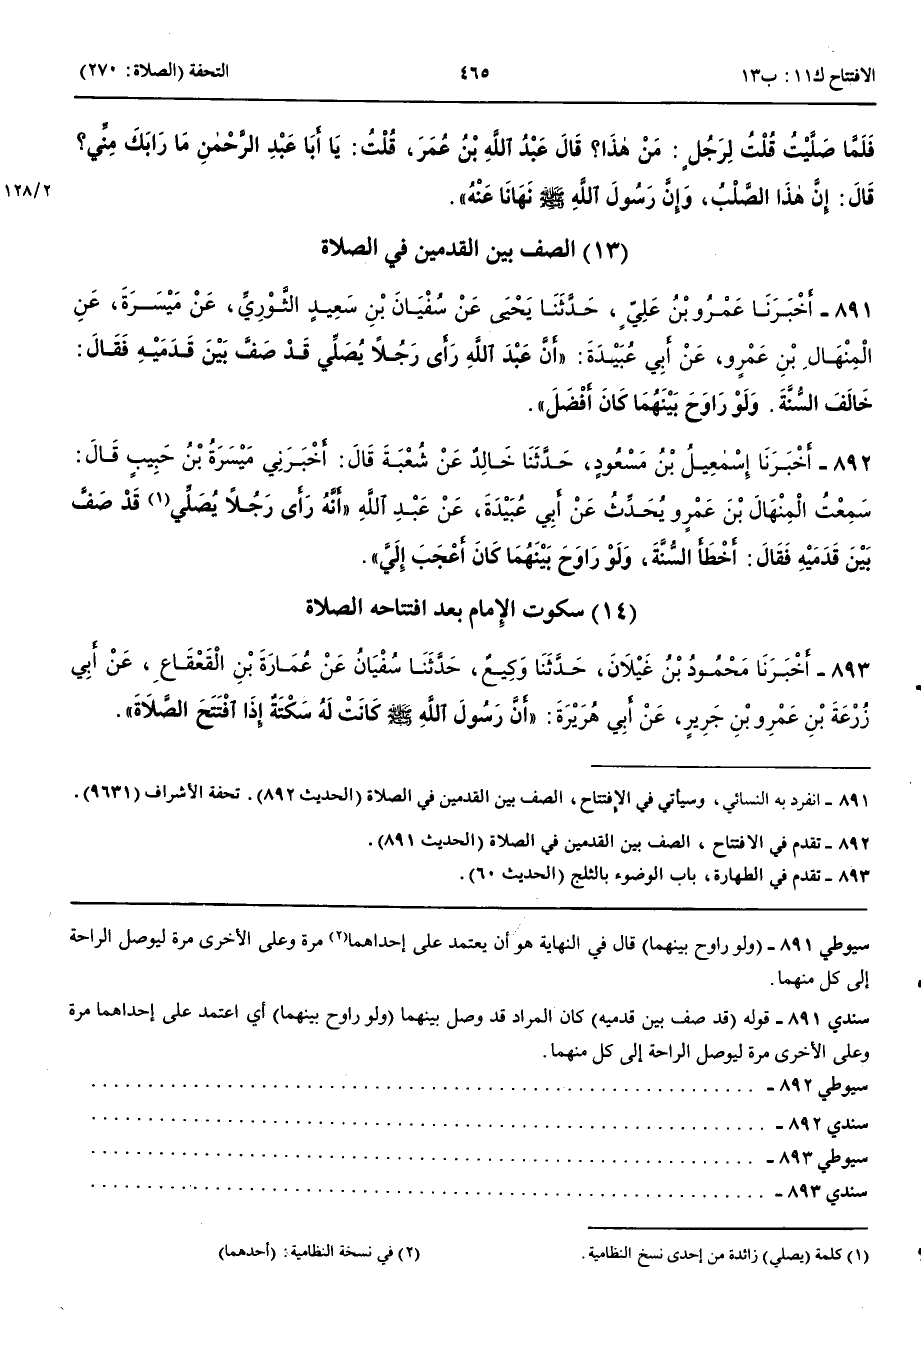 الافتتاح ك١١: ب١٣ ٤٦٥ التحفة (الصلاة: ٢٧٠)
فَلَمَّا صَلَّيْتُ قُلْتُ لِرَجُلٍ: مَنْ هٰذَا؟ قَالَ عَبْدُ ٱللَّهِ بْنُ عُمَرَ، قُلْتُ: يَا أَبَا عَبْدِ الرَّحْمٰنِ مَا رَابَكَ مِنِّي؟
قَالَ: إِنَّ هٰذَا الصَّلْبُ، وَإِنَّ رَسُولَ ٱللَّهِ ﷺ نَهَانَا عَنْهُ». ١٢٨/٢
(١٣) الصف بين القدمين في الصلاة
٨٩١ - أَخْبَرَنَا عَمْرُو بْنُ عَلِيٍّ، حَدَّثَنَا يَحْيَى عَنْ سُفْيَانَ بْنِ سَعِيدٍ الثَّوْرِيِّ، عَنْ مَيْسَرَةَ، عَنِ
الْمِنْهَالِ بْنِ عَمْرٍو، عَنْ أَبِي عُبَيْدَةَ: «أَنَّ عَبْدَ ٱللَّهِ رَأَى رَجُلاً يُصَلِّي قَدْ صَفَّ بَيْنَ قَدَمَيْهِ فَقَالَ:
خَالَفَ السُّنَّةَ. وَلَوْ رَاوَحَ بَيْنَهُمَا كَانَ أَفْضَلَ».
٨٩٢ - أَخْبَرَنَا إِسْمٰعِيلُ بْنُ مَسْعُودٍ، حَدَّثَنَا خَالِدٌ عَنْ شُعْبَةَ قَالَ: أَخْبَرَنِي مَيْسَرَةُ بْنُ حَبِيبٍ قَالَ:
سَمِعْتُ الْمِنْهَالَ بْنَ عَمْرٍو يُحَدِّثُ عَنْ أَبِي عُبَيْدَةَ، عَنْ عَبْدِ ٱللَّهِ «أَنَّهُ رَأَى رَجُلاً يُصَلِّي(١) قَدْ صَفَّ
بَيْنَ قَدَمَيْهِ فَقَالَ: أَخْطَأَ السُّنَّةَ، وَلَوْ رَاوَحَ بَيْنَهُمَا كَانَ أَعْجَبَ إِلَيَّ».
(١٤) سكوت الإمام بعد افتتاحه الصلاة
٨٩٣ - أَخْبَرَنَا مَحْمُودُ بْنُ غَيْلَانَ، حَدَّثَنَا وَكِيعٌ، حَدَّثَنَا سُفْيَانُ عَنْ عُمَارَةَ بْنِ الْقَعْقَاعِ، عَنْ أَبِي
زُرْعَةَ بْنِ عَمْرِو بْنِ جَرِيرٍ، عَنْ أَبِي هُرَيْرَةَ: «أَنَّ رَسُولَ ٱللَّهِ ﷺ كَانَتْ لَهُ سَكْتَةٌ إِذَا ٱفْتَتَحَ الصَّلَاةَ».
٨٩١ - انفرد به النسائي، وسيأتي في الإفتتاح، الصف بين القدمين في الصلاة (الحديث ٨٩٢). تحفة الأشراف (٩٦٣١).
٨٩٢ - تقدم في الافتتاح، الصف بين القدمين في الصلاة (الحديث ٨٩١).
٨٩٣ - تقدم في الطهارة، باب الوضوء بالثلج (الحديث ٦٠).
سيوطي ٨٩١ - (ولو راوح بينهما) قال في النهاية هو أن يعتمد على إحداهما(٢) مرة وعلى الأخرى مرة ليوصل الراحة
إلى كل منهما.
سندي ٨٩١ - قوله (قد صف بين قدميه) كان المراد قد وصل بينهما (ولو راوح بينهما) أي اعتمد على إحداهما مرة
وعلى الأخرى مرة ليوصل الراحة إلى كل منهما.
سيوطي ٨٩٢ - ..................................................
سندي ٨٩٢ - ..................................................
سيوطي ٨٩٣ - ..................................................
سندي ٨٩٣ - ..................................................
(١) كلمة (يصلي) زائدة من إحدى نسخ النظامية. (٢) في نسخة النظامية: (أحدهما)